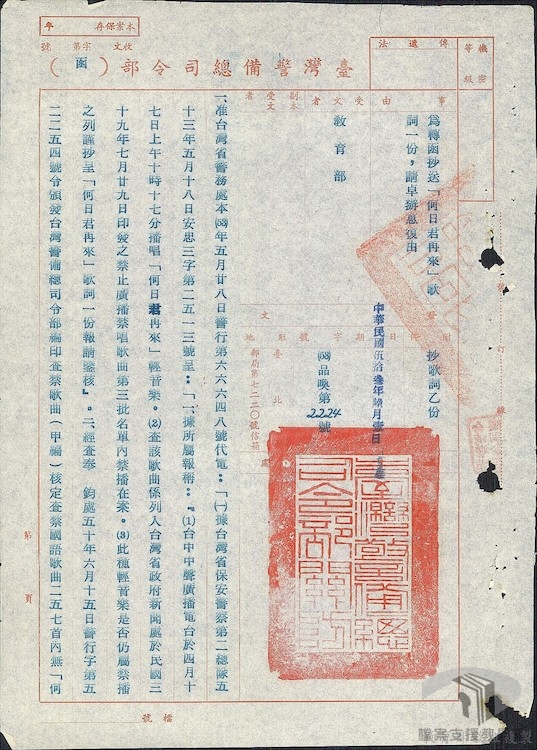 本案保存 年
收文 字第 號
臺灣警備總司令部（函）
機密等級
傳遞法
事由
為轉函抄送「何日君再來」歌
詞一份，請卓辦惠復由
受文者
教育部
副本受文者
發文
附件
抄歌詞乙份
日期
中華民國伍拾叁年陸月壹日
字號
品喚第2224號
駐地
臺北郵局第七二二〇號信箱
臺灣警備總司令部關防
一、准台灣省警務處本年五月廿八日警行第六六六四八號代電：「㈠據台灣省保安警察第二總隊五
十三年五月十八日安忠三字第二五一三號呈：「一、據所屬報稱：『⑴台中中聲廣播電台於四月十
七日上午十時十七分播唱「何日君再來」輕音樂。⑵查該歌曲係列入台灣省政府新聞處於民國三
十九年七月廿九日印發之禁止廣播禁唱歌曲第三批名單內禁播在案。⑶此種輕音樂是否仍屬禁播
之列謹抄呈「何日君再來」歌詞一份報請鑒核』。二、經查奉 鈞處五十年六月十五日警行字第五
二二五四號令頒發台灣警備總司令部編印查禁歌曲（甲編）核定查禁國語歌曲二五七首內無「何
第 頁
檔號
訂 線
檔案支援教
複製